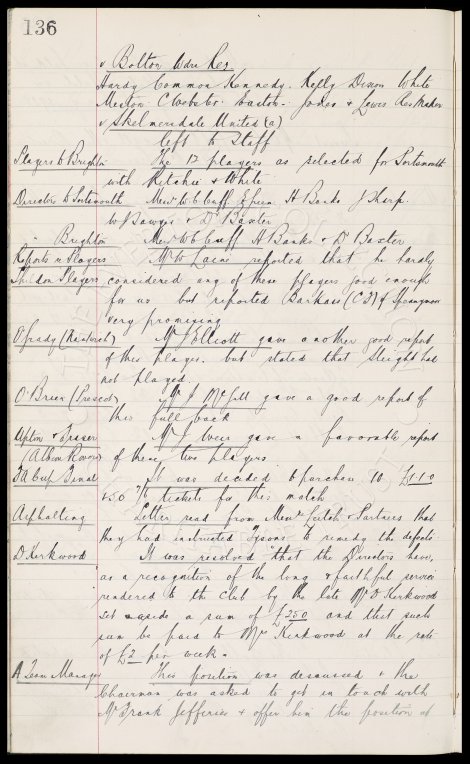 136
v Bolton Wdrs Res
Hardy Common Kennedy. Kelly Dixon White
Meston C Webster Easton. Jones & Lewis Res Maker
v Skelmersdale United (a)
left to Staff
Players to Brighton The 12 players as selected for Portsmouth
with Ritchie & White
Directors to Portsmouth Messrs W C Cuff Green H Banks J Sharp
W Sawyer & Dr Baxter
" Brighton Messrs W C Cuff H Banks & Dr Baxter
Reports on Players Mr W Laine reported that he hardly
Shildon Players considered any of these players good enough
for us but reported (C.F.) &
very promising
O'Grady (Nantwich) Mr J Elliott gave another good report
of this player. but stated that Sleight had
not played.
O'Brien (Prescot) Mr J McGill gave a good report of
this full back
Upton & Fraser Mr J Weir gave a favorable report
(Albion Rovers) of these two players
FA Cup Final It was decided to purchase 10 £1-1-0
& 50 tickets for this match
Asphalting Letter read from Messrs Leitch & Partners that
they had instructed Tysons to remedy the defects.
D. Kirkwood It was resolved "that the Directors have,
as a recognition of the long & faithful services
rendered to the Club by the late Mr D Kirkwood
set aside a sum of £250 and that such
sum be paid to Mrs Kirkwood at the rate
of £2 per week."
A Team Manager This position was discussed & the
Chairman was asked to get in touch with
Mr Frank Jefferies & offer him the position at